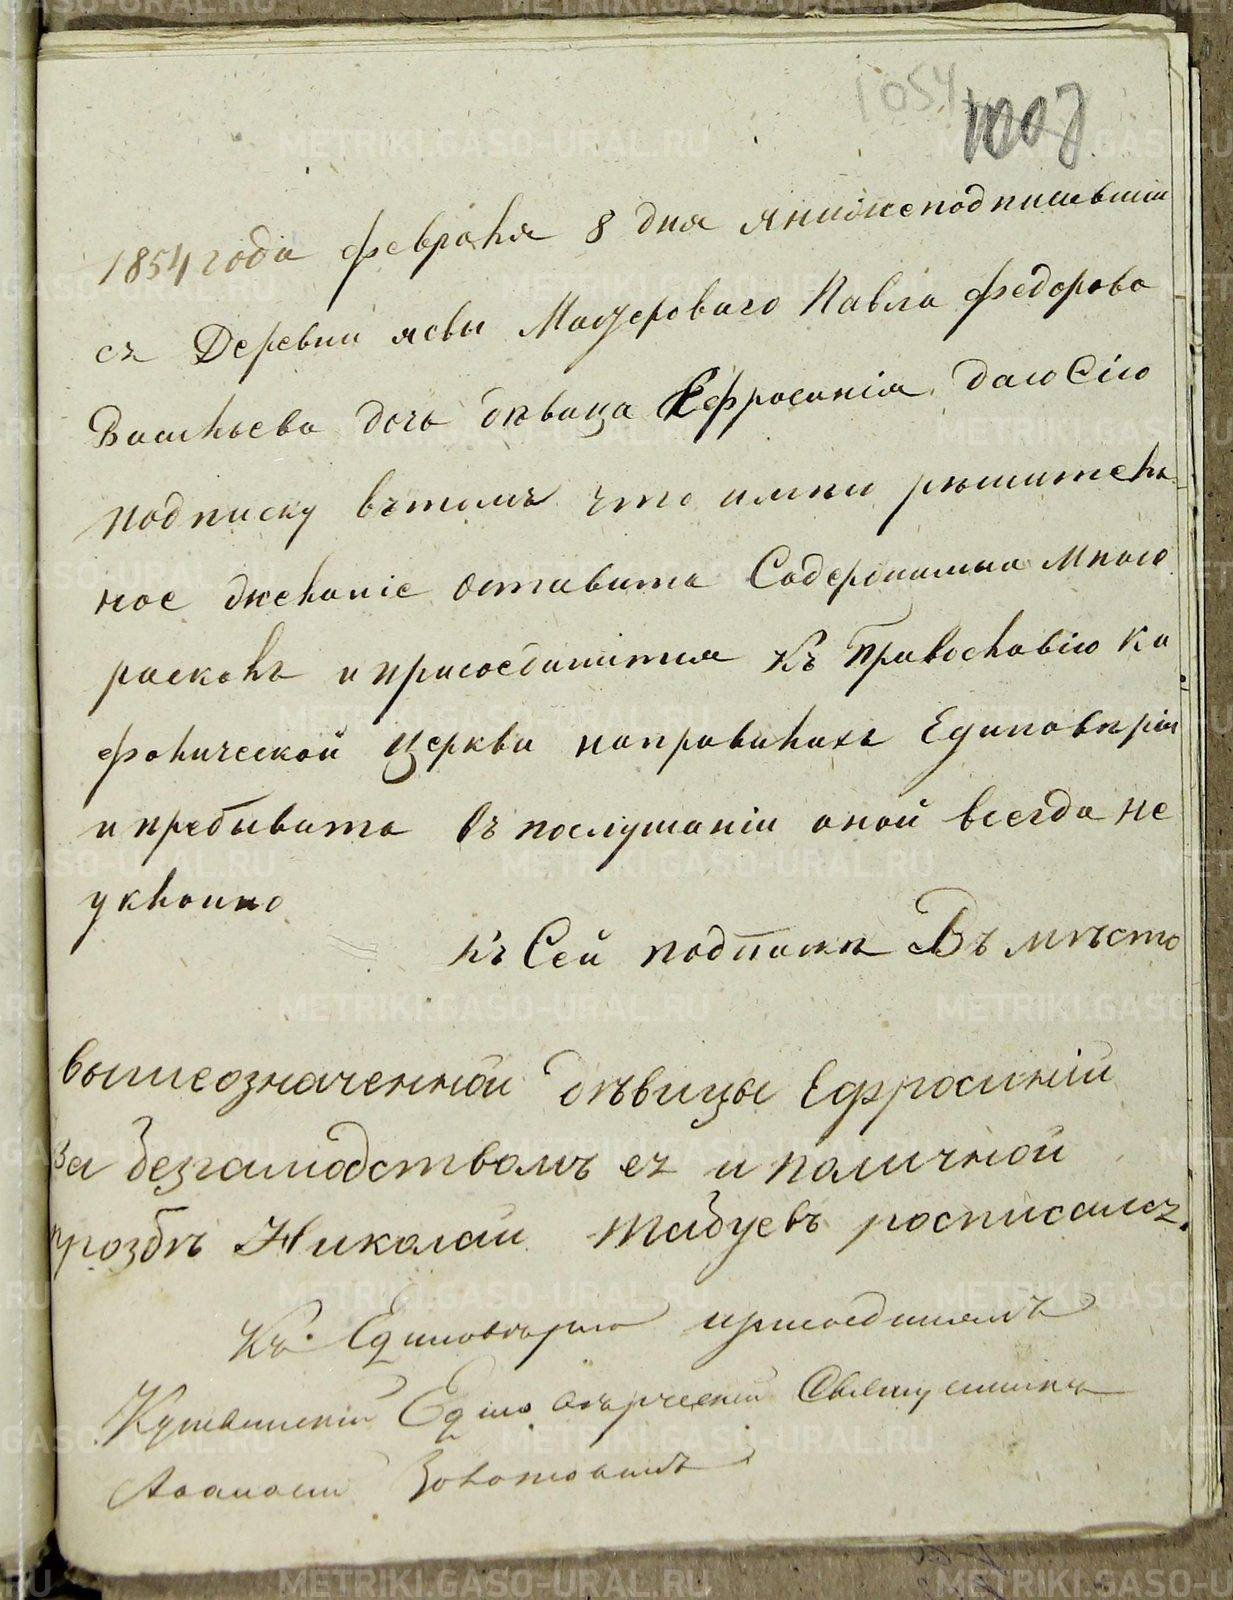 1054
1007
1854 года февраля 8 дня я нижеподписавшiи
съ Деревни Мастероваго Павла Федорова
Васильева дочь дѣвица Ефросинiя даю Сiю
подписку въ томъ что имѣи рѣшитель
ное желанiе оставить Содержимыи Мною
расколъ и присоединится Къ Православiю Ка
фолической церкви направилахъ Единовѣрiи
и пребывать въ послушанiи оной всегда не
уклонно
къ Сей подпискѣ Въ мѣсто
вышеозначенной дѣвицы Ефросинiи
За безграмодствомъ еъ и поличной
прозбѣ Николаи Табуевъ росписалсъ.
Къ Единовѣрию присоединялъ
Кушвинскiй Единовѣрческiй Священникъ
Золотовинъ